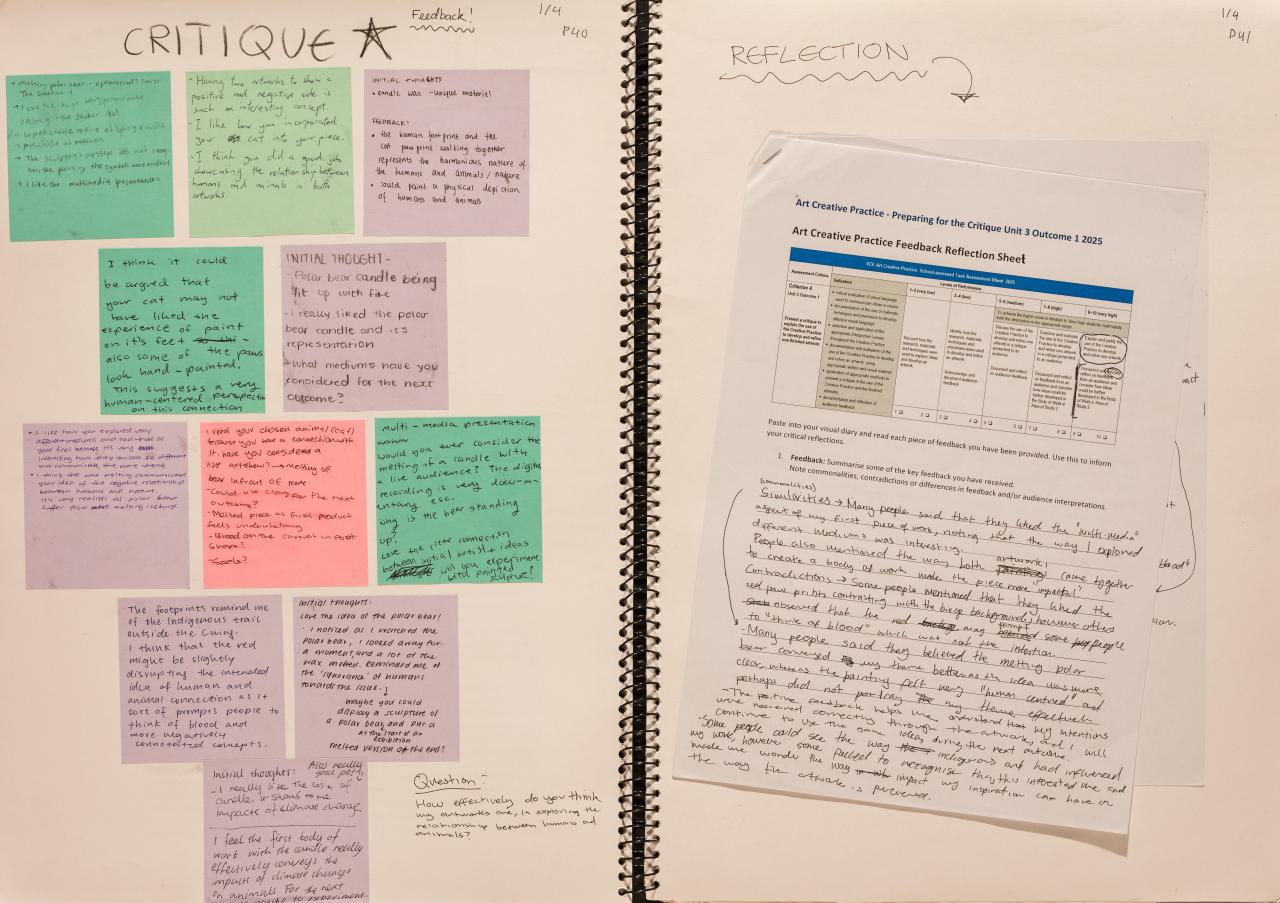 CRITIQUE
Feedback!
1/4
P40
→ Melting polar bear - ephemeral?
→ I like the multimedia presentation
- Having two artworks to show a
positive and negative side is
such an interesting concept.
- I like how you incorporated
your cat into your piece.
- I think you did a good job
showcasing the relationship between
humans and animals in both
artworks.
INITIAL THOUGHTS
• candle wax - unique material
FEEDBACK:
• the human footprint and the
cat pawprint walking together
represents the harmonious nature of
the humans and animals / nature
• could paint a physical depiction
of humans and animals
I think it could
be argued that
your cat may not
have liked the
experience of paint
on it's feet
also some of the paws
look hand-painted.
This suggests a very
human-centered perspective
on this connection
INITIAL THOUGHT-
- Polar bear candle being
lit up with fire
- I really liked the polar
bear candle and its
representation
- What mediums have you
considered for the next
outcome?
• I like how you explored very
different mediums and had those as
your final because it's very
interesting how they can look so different
but communicate the same theme
• I think the wax melting communicated
your idea of the negative relationship
between humans and nature.
It's very realistic as polar bears
suffer from melting icebergs.
I liked your chosen animal (cat)
because you have a connection with
it. Have you considered a
live artshow? → melting of
bear infront of people.
- Could use clay for the next
outcome?
- Melted piece as final product
feels underwhelming
- Blood on the canvas in foot
shape?
- Seals?
Multi-media presentation
would you ever consider the
melting of a candle with
a live audience? The digital
recording is very docu-m-
entary esc.
why is the bear standing
up?
Love the clear connection
between initial artist + ideas
will you experiment
with painted
sculpture?
The footprints remind me
of the Indigenous trail
outside the
I think that the red
might be slightly
disrupting the intended
idea of human and
animal connection as it
sort of prompts people to
think of blood and
more negatively
connotated concepts.
Initial thoughts:
Love the idea of the polar bear!
- I noticed as I watched the
polar bear, I looked away for
a moment, and a lot of the
wax melted. Reminded me of
the 'ignorance' of humans
towards the issue.
maybe you could
display a sculpture of
a polar bear, and put a
at the start of an
exhibition
melted version at the end?
Initial thoughts: Also really
good pot,
- I really like the use of
candle. It shows to me
impacts of climate change
I feel the first body of
work with the candle really
effectively conveys the
impacts of climate change
on animals. For the next
Question:-
How effectively do you think
my artworks are, in exploring the
relationship between humans and
animals?
1/4
P41
REFLECTION
Art Creative Practice - Preparing for the Critique Unit 3 Outcome 1 2025
Art Creative Practice Feedback Reflection Sheet
VCE Art Creative Practice School-assessed Task Assessment Sheet 2025
Assessment Criteria
Indicators
Levels of Performance
1-2 (very low)
3-4 (low)
5-6 (medium)
7-8 (high)
9-10 (very high)
Criterion 4
Unit 3 Outcome 1
Present a critique to
explain the use of
the Creative Practice
to develop and refine
one finished artwork
Paste into your visual diary and read each piece of feedback you have been provided. Use this to inform
your critical reflections.
1. Feedback: Summarise some of the key feedback you have received.
Note commonalities, contradictions or differences in feedback and/or audience interpretations.
(commonalities)
Similarities → Many people said that they liked the "multi-media"
aspect of my first piece of work, noting that the way I explored
different mediums was interesting.
People also mentioned the way both artworks came together
to create a body of work made the piece more "impactful"
Contradictions → Some people mentioned that they liked the
red paw prints contrasting with the background, however others
observed that the red may prompt some people
to "think of blood" which was not the intention.
- Many people said they believed the melting polar
bear conveyed my theme better as the idea was more
clear, whereas the painting felt very "human centred" and
perhaps did not portray my theme effectively
- The positive feedback helps me understand that my intentions
were received correctly through the artwork, and I will
continue to use the same ideas during the next outcome.
- Some people could see the way indigenous art had influenced
my work, however some failed to recognise they, this interested me and
made me wonder the way impact my inspiration can have on
the way the artwork is perceived.
blood"